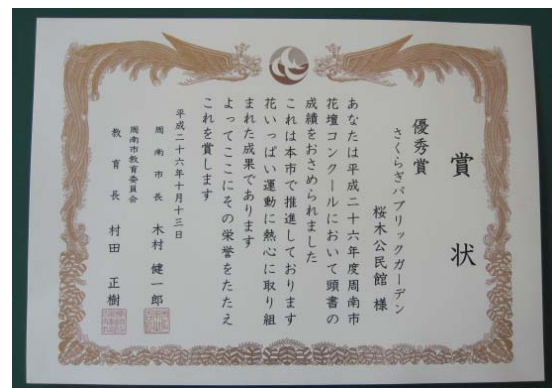 賞状
優秀賞
さくらぎパブリックガーデン
桜木公民館 様
あなたは平成二十六年度周南市
花壇コンクールにおいて頭書の
成績をおさめられました
これは本市で推進しております
花いっぱい運動に熱心に取り組
まれた成果であります
よってここにその栄誉をたたえ
これを賞します
平成二十六年十月十三日
周南市長 木村 健一郎
周南市教育委員会
教育長 村田 正樹